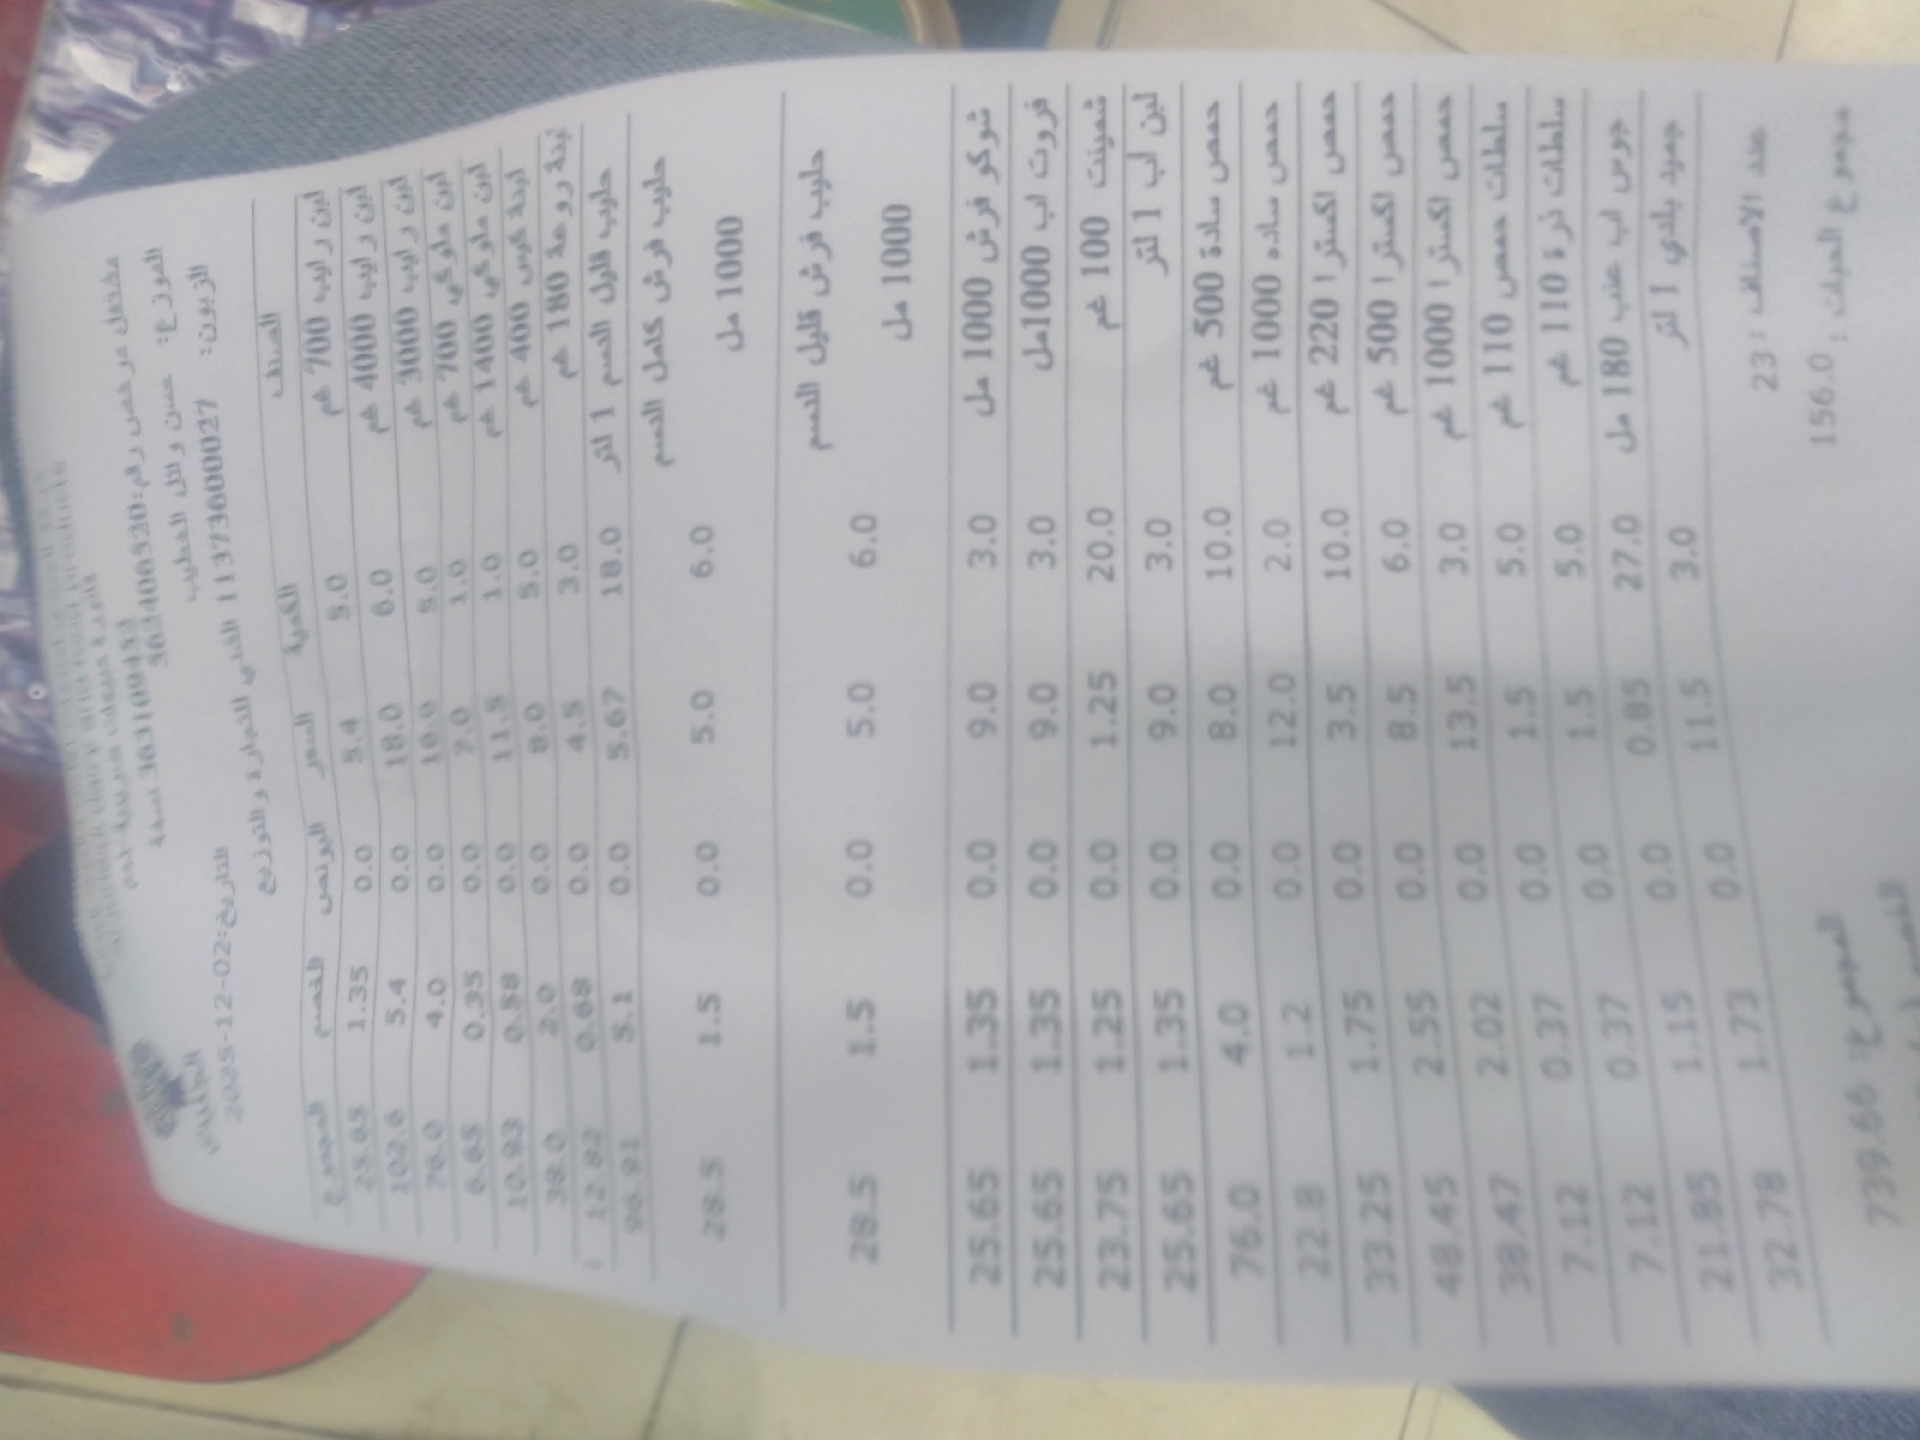 dairy and food products
مشتغل مرخص رقم: 562406920
الموزع: حسن وائل الخطيب
الزبون: 11373600027 الغني للتجارة والتوزيع
التاريخ: 2025-12-02
الصنف الكمية السعر البونص الخصم المجموع
لبن رايب 700 غم 5.0 5.4 0.0 1.35 25.65
لبن رايب 4000 غم 6.0 18.0 0.0 5.4 102.6
لبن رايب 3000 غم 5.0 16.0 0.0 4.0 76.0
لبن ملوكي 700 غم 1.0 7.0 0.0 0.35 6.65
لبن ملوكي 1400 غم 1.0 11.5 0.0 0.58 10.93
لبنة كوب 400 غم 5.0 8.0 0.0 2.0 38.0
180 غم 3.0 4.5 0.0 0.68 12.82
حليب قليل الدسم 1 لتر 18.0 5.67 0.0 5.1 96.91
حليب فرش كامل الدسم 6.0 5.0 0.0 1.5 28.5
1000 مل
حليب فرش قليل الدسم 6.0 5.0 0.0 1.5 28.5
1000 مل
شوكو فرش 1000 مل 3.0 9.0 0.0 1.35 25.65
فروت اب 1000مل 3.0 9.0 0.0 1.35 25.65
شمينت 100 غم 20.0 1.25 0.0 1.25 23.75
لبن اب 1 لتر 3.0 9.0 0.0 1.35 25.65
حمص سادة 500 غم 10.0 8.0 0.0 4.0 76.0
حمص ساده 1000 غم 2.0 12.0 0.0 1.2 22.8
حمص اكسترا 220 غم 10.0 3.5 0.0 1.75 33.25
حمص اكسترا 500 غم 6.0 8.5 0.0 2.55 48.45
حمص اكسترا 1000 غم 3.0 13.5 0.0 2.02 38.47
سلطات حمص 110 غم 5.0 1.5 0.0 0.37 7.12
سلطات ذرة 110 غم 5.0 1.5 0.0 0.37 7.12
جوس اب عنب 180 مل 27.0 0.85 0.0 1.15 21.85
جميد بلدي 1 لتر 3.0 11.5 0.0 1.73 32.78
عدد الاصناف : 23
مجموع الحبات : 156.0
المجموع: 739.66